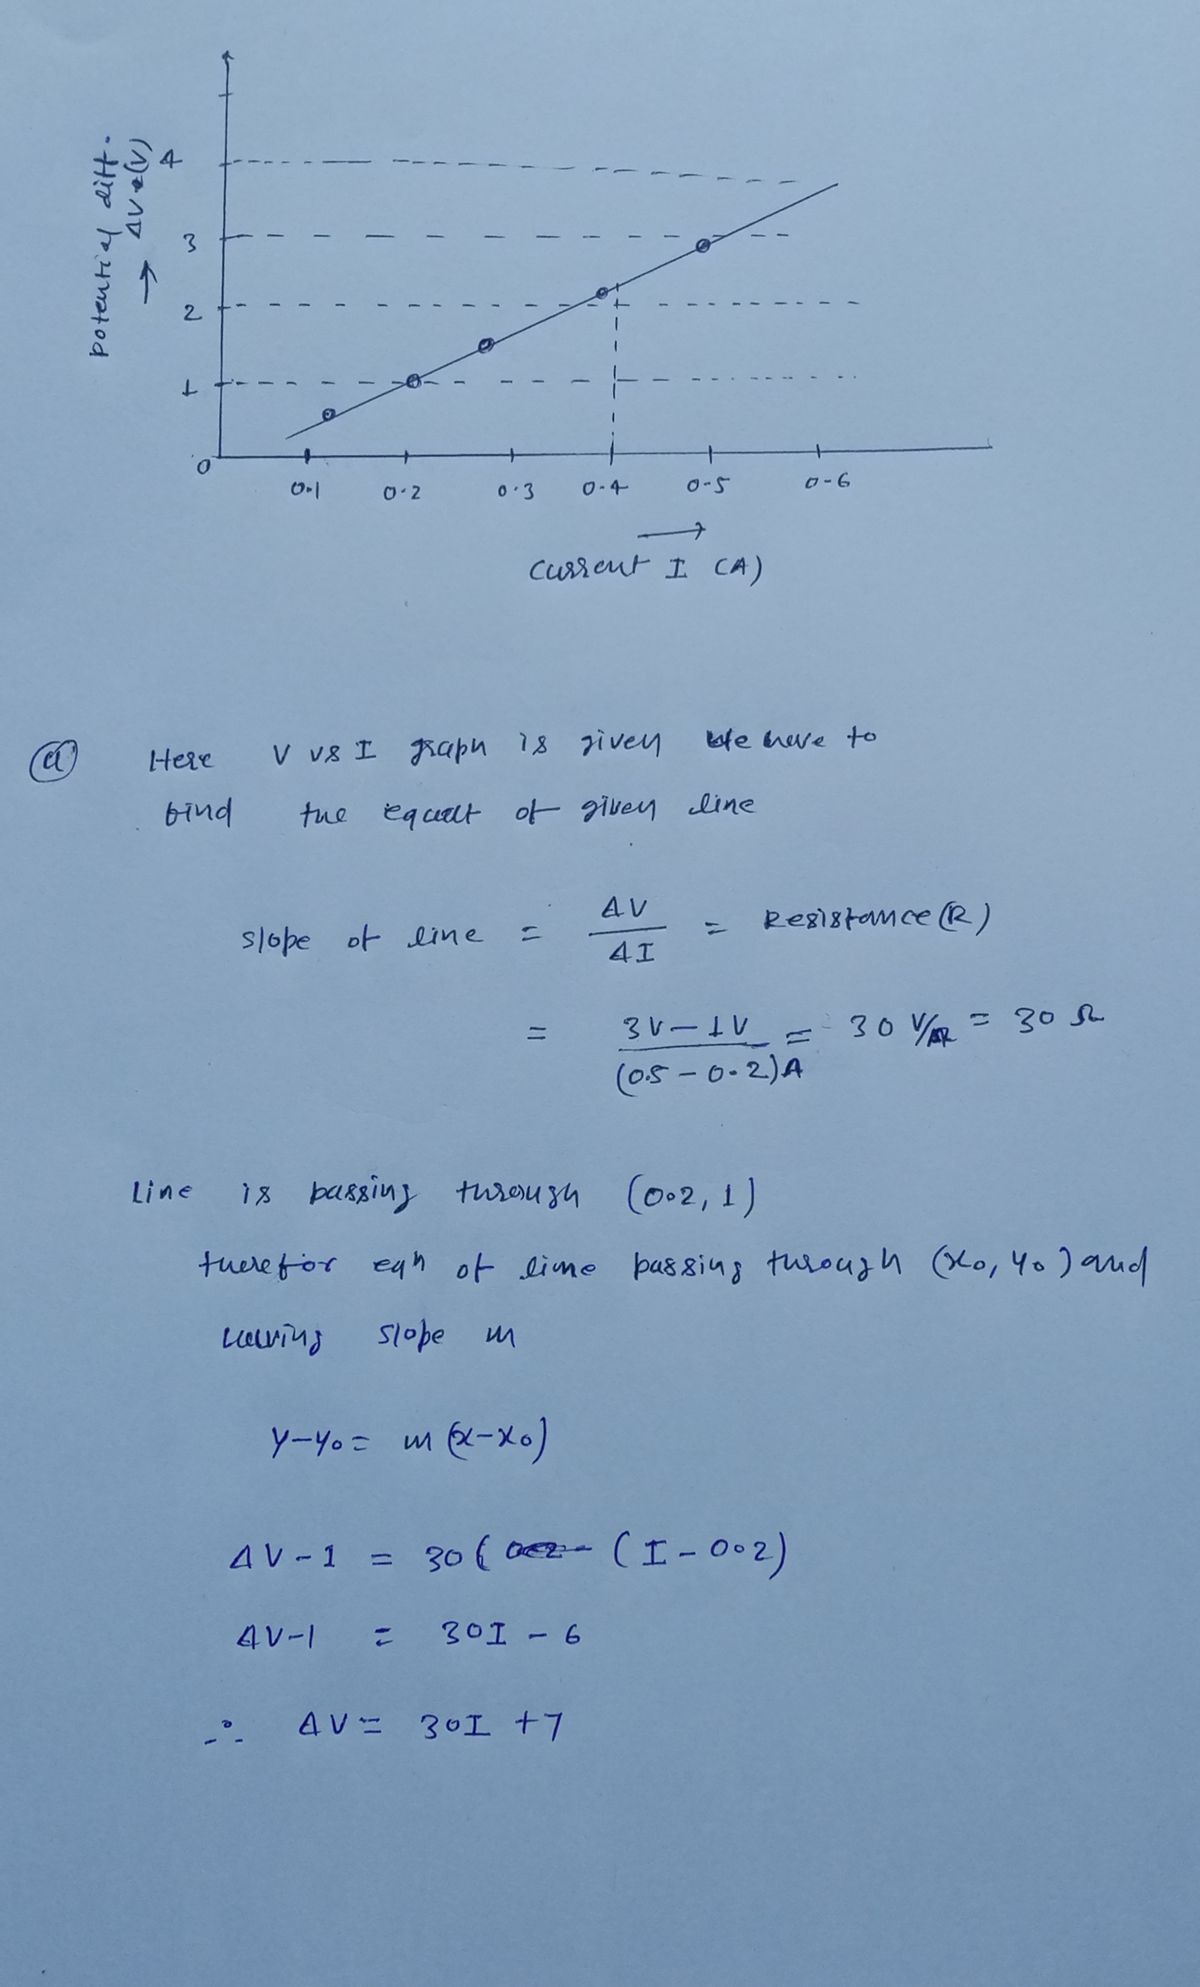 potential diff.
ΔV (V)
4
3
2
1
0
0.1 0.2 0.3 0.4 0.5 0.6
Current I (A)
(a) Here V vs I graph is given We have to
find the equat of given line
slope of line = ΔV/ΔI = Resistance (R)
= 3V-1V/(0.5-0.2)A = 30 V/A = 30 Ω
Line is passing through (0.2, 1)
therefor eqn of line passing through (x₀, y₀) and
having slope m
y-y₀ = m(x-x₀)
ΔV-1 = 30 (I-0.2)
ΔV-1 = 30I - 6
∴ ΔV = 30I + 7